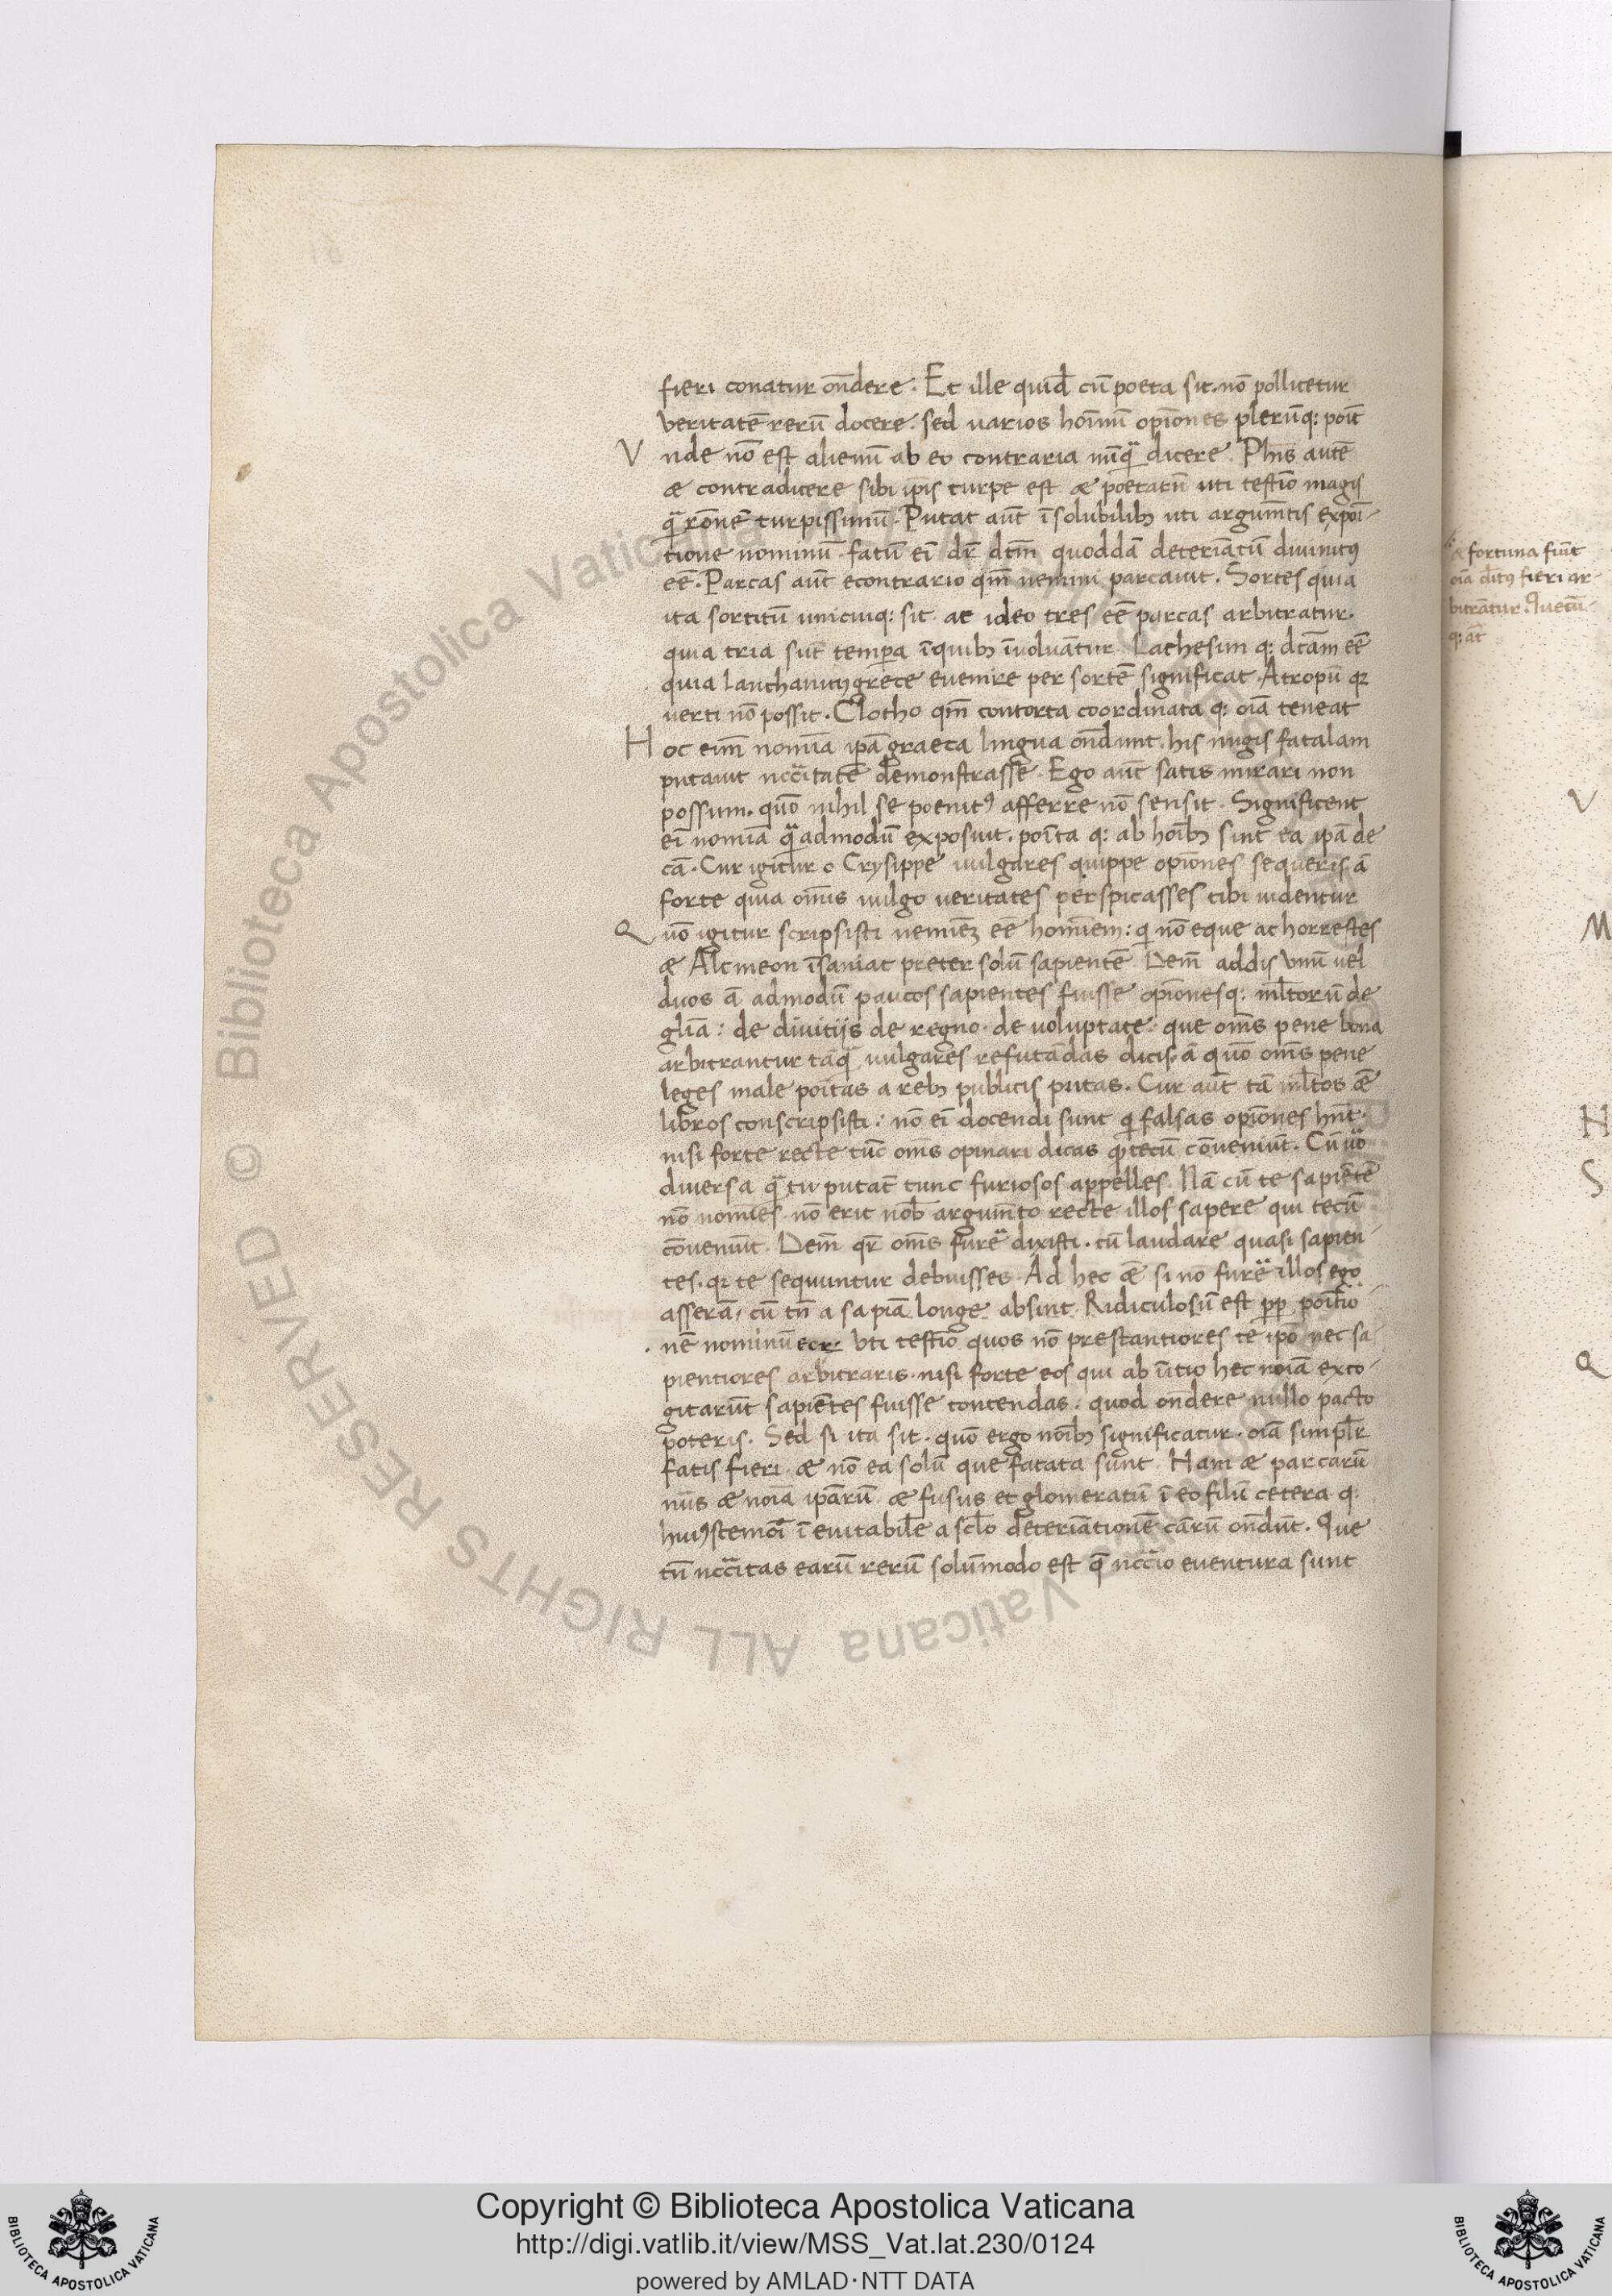 fieri conatur ōndere. Et ille quid̄ cū poeta sit. nō pollicetur
veritatē rerū docere. sed varios hoīnū opīones plerūq: poīt
Vnde nō est alienū ab eo contraria nūq̄ dicere. Phīs autē
æ contradicere sibi ip̄is turpe est æ poetarū uti testīo magis
q̄ rōnē turpissimū. Putat aūt īsolubilibꝫ uti argum̄tis expoī-
tione nominū. fatū eī dr̄ dcm̄ quoddā deteriātū divinitꝰ
eē. Parcas aūt econtrario qm̄ nemini parcāut. Sortes quia
ita sortitū unicuiq: sit. ac ideo tres eē parcas arbitratur.
quia tria sūt tempa īquibꝫ īvoluātur. Lachesim q: dcām eē
quia lanchanin grece evenire per sortē significat. Atropū qꝛ
verti nō possit. Clotho qm̄ contorta coordinata q: oīa teneat
Hoc eim̄ nomīa ipā graeca lingua ōndunt. his nugis fatalam
putavit nccītatē demonstrasse. Ego aūt satis mirari non
possum. quō nihil se poenitꝰ afferre nō sensit. Significent
eī nomīa q̄admodū exposuit. poīta q: ab hoībꝫ sint ea ipā de
cā. Cur igitur o Crysippe vulgares quippe opīones sequeris ā
forte quia om̄is vulgo veritates perspicasses tibi videntur
Quō igitur scripsisti nemiēꝫ eē homīem: qi nō eque ac horrestes
æ Alcmeon īsaniat preter solū sapientē. Dem̄ addis unū vel
duos ā admodū paucos sapientes fuisse opīonesq: ml̄torū de
gl̄īa: de divitijs de regno. de voluptate. que om̄s pene bona
arbitrantur tāq̄ vulgares refutādas dicis. ā quō om̄s pene
leges male poītas a rebꝫ publicis putas. Cur aūt tā ml̄tos ǣ
libros conscripsisti: nō eī docendi sunt qi falsas opīones hn̄t.
nisi forte recte tūc om̄s opinari dicas qn̄ tecū cōveniūt. Cū ūo
diversa q̄ tu putāt tunc furiosos appelles. Nā cū te sapiētē
nō nomīes. nō erit nob̄ argum̄to recte illos sapere qui tecū
cōveniūt. Dem̄ qr̄ om̄s furē dixisti. cū laudare quasi sapien-
tes. qꝛ te sequuntur debuisses. Ad hec ǣ si nō furē illos ego
asserā, cū tn̄ a sapīa longe absint. Ridiculosū est pp poīīo
nē nominū eor̄. Uti testīo quos nō prestantiores te ipō nec sa
pientiores arbitraris. nisi forte eos qui ab īītio hec noīa exco-
gitarūt sapiētes fuisse contendas: quod ōndere nullo pacto
poteris. Sed si ita sit. quō ergo noībꝫ significatur. oīa simplr̄
fatis fieri. æ nō ea solū que fatata sūnt. Nam æ parcarū
nūs æ noīa ipārū. æ fusus et glomeratū ī eo filū cetera q:
huiꝰscemōi īevitabile a scl̄o deteriātionē cārū ōndūt. Que
tn̄ nccītas earū rerū solūmodo est q̄ nccīo eventura sunt
æ fortuna fiūt
oīa dītꝰ fieri ar-
bitrātur. Quecū-
q: at̄
V
M
H
S
Q
Copyright © Biblioteca Apostolica Vaticana
http://digi.vatlib.it/view/MSS_Vat.lat.230/0124
powered by AMLAD·NTT DATA
BIBLIOTECA APOSTOLICA VATICANA
BIBLIOTECA APOSTOLICA VATICANA
© Biblioteca Apostolica Vaticana ALL RIGHTS RESERVED